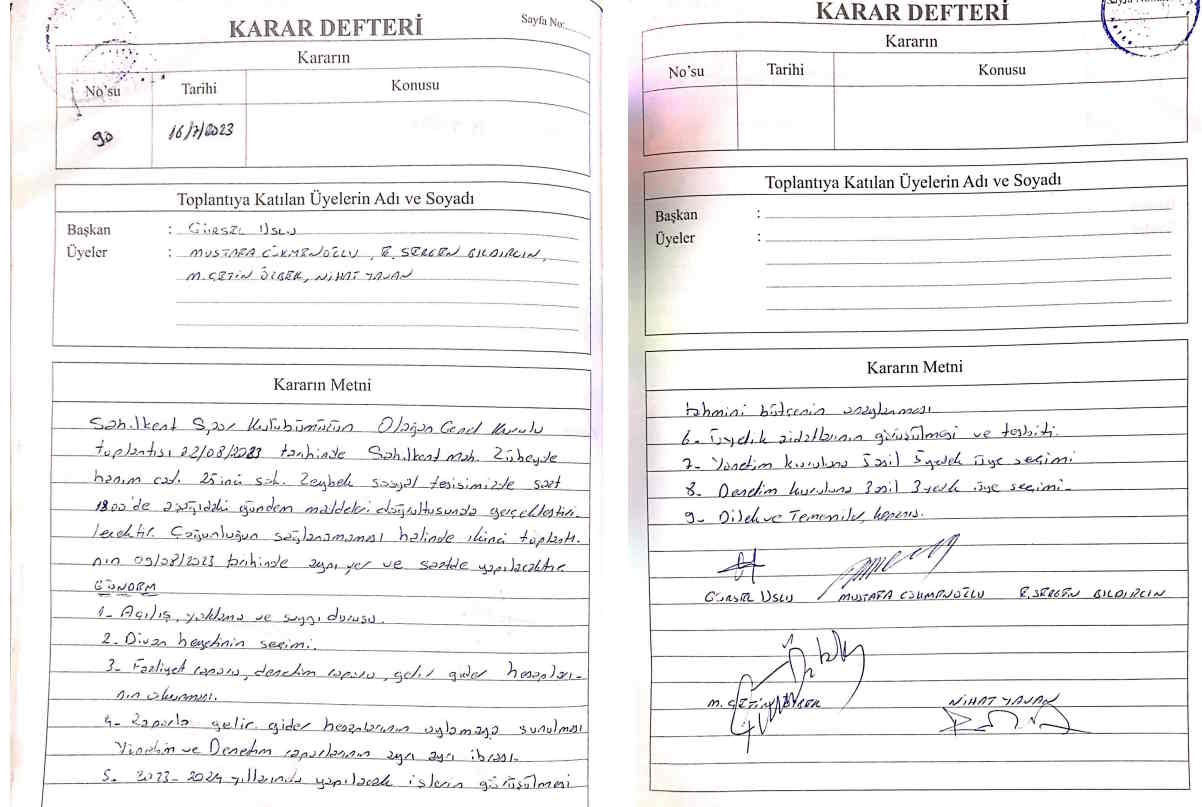 KARAR DEFTERİ
Sayfa No:
Kararın
No'su
Tarihi
Konusu
90
16/7/2023
Toplantıya Katılan Üyelerin Adı ve Soyadı
Başkan : GÜRSEL USLU
Üyeler : MUSTAFA CÜKMENOĞLU, E. SERGEN BILDIRCIN,
M. ÇETİN ÜLBER, NİHAT YAVAN
Kararın Metni
Sahilkent Spor Kulubümüzün Olağan Genel Kurulu
toplantısı 22/08/2023 tarihinde Sahilkent mah. Zübeyde
hanım cad. 25inci sok. Zeybek sosyal tesisimizde saat
1900'de aşağıdaki gündem maddeleri doğrultusunda gerçekleştiri-
lecektir. Çoğunluğun sağlanamaması halinde ikinci toplantı-
nın 09/08/2023 tarihinde aynı yer ve saatde yapılacaktır.
GÜNDEM
1- Açılış, yoklama ve saygı duruşu.
2- Divan heyetinin seçimi.
3- Faaliyet raporu, denetim raporu, gelir gider hesapları-
nın okunması.
4- Raporla gelir gider hesaplarının oylamaya sunulması
Yönetim ve Denetim raporlarının ayrı ayrı ibrası-
5- 2023-2024 yıllarında yapılacak işlerin görüşülmesi
KARAR DEFTERİ
Kararın
No'su
Tarihi
Konusu
Toplantıya Katılan Üyelerin Adı ve Soyadı
Başkan :
Üyeler :
Kararın Metni
tahmini bütçenin onaylanması
6- Üyelik aidatlarının görüşülmesi ve tesbiti.
7- Yönetim kuruluna 5 asil 5 yedek üye seçimi
8- Denetim kuruluna 3 asil 3 yedek üye seçimi-
9- Dilek ve Temenniler, kapanış.
GÜRSEL USLU MUSTAFA CÜKMENOĞLU E. SERGEN BILDIRCIN
M. ÇETİN ÜLBER NİHAT YAVAN